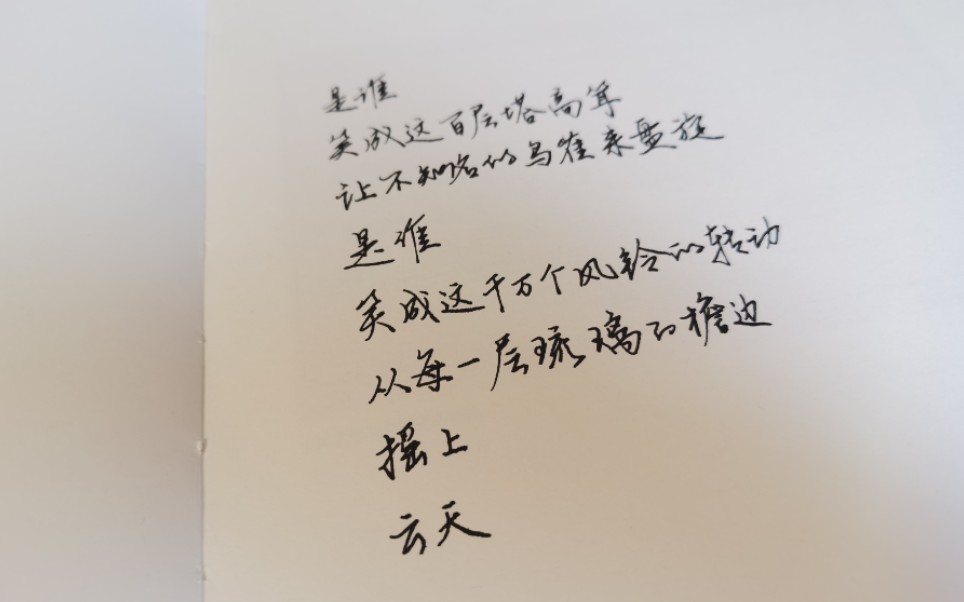 是谁
笑成这百层塔高耸
让不知名的鸟雀来盘旋
是谁
笑成这千万个风铃的转动
从每一层琉璃的檐边
摇上
云天